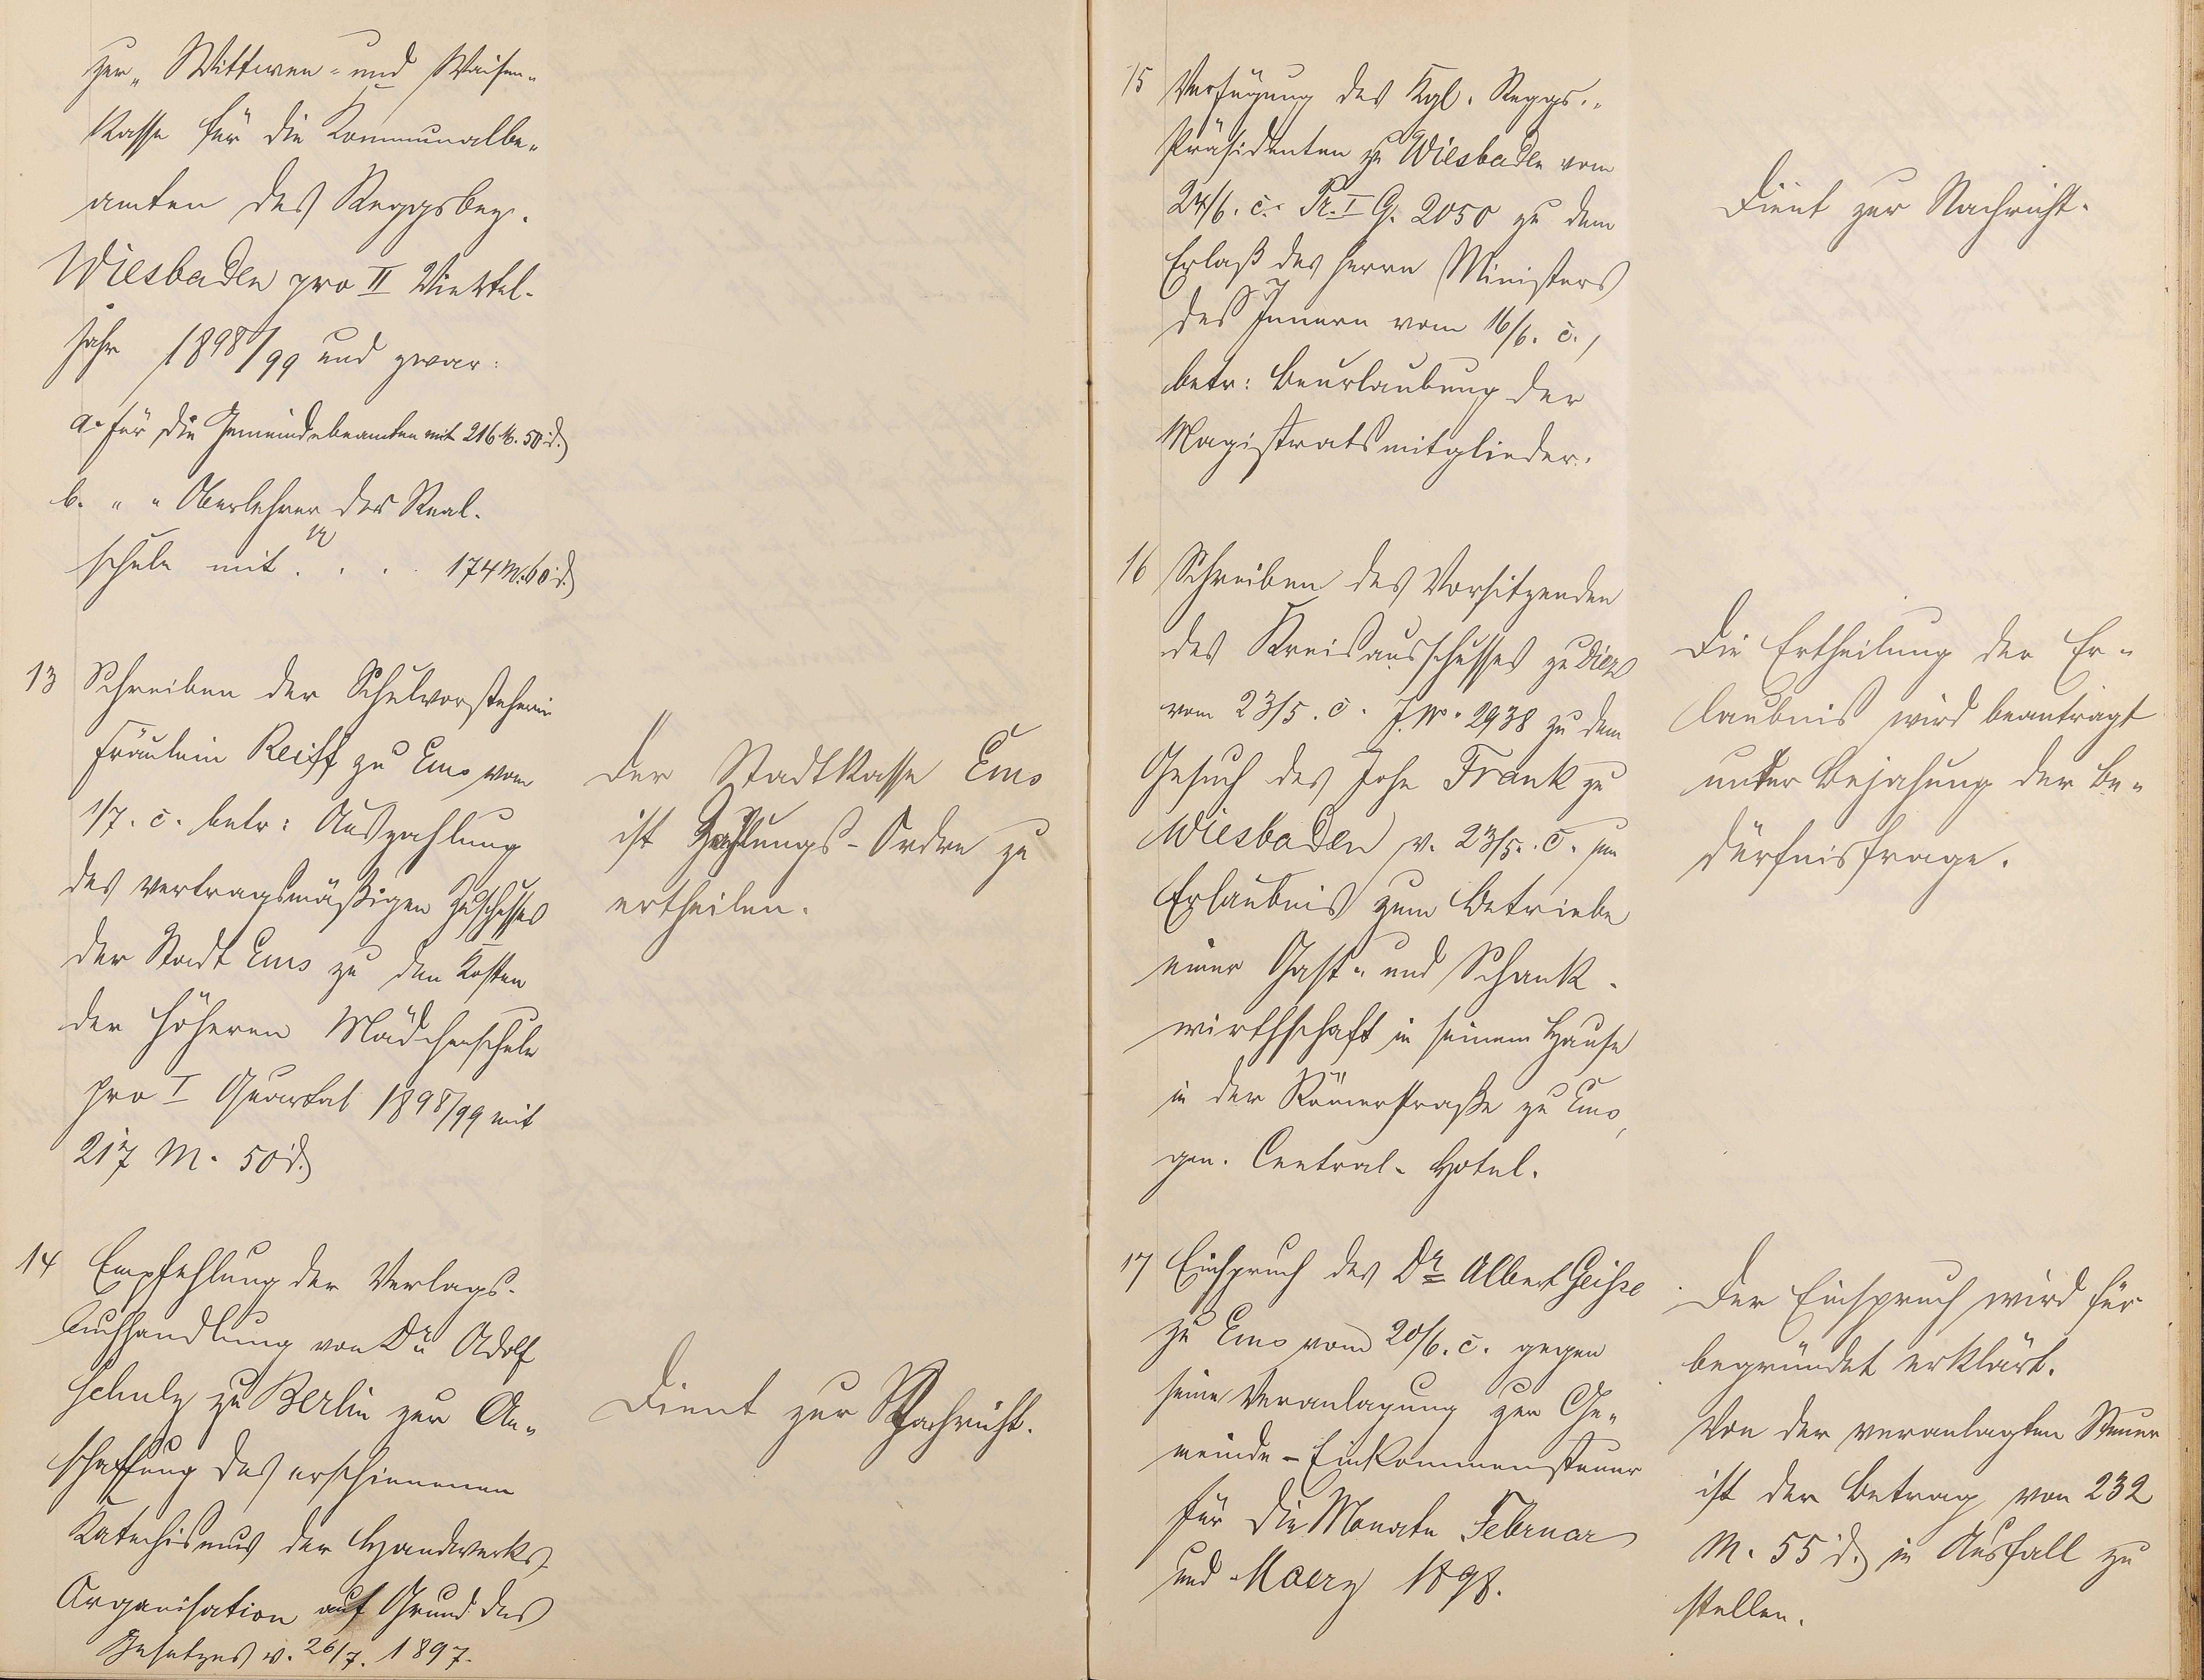 zur „Wittwen- und Waisen-
kasse für die Kommunalbe-
amten des Reggsbez.
Wiesbaden pro II Viertel-
jahr 1898/99 und zwar:
a. für die Gemeindebeamten mit 216 M. 50 d.
b. " " Oberlehrer der Real-
schule mit . . . 174 M. 60 d.
13 Schreiben der Schulvorsteherin
Fräulein Reiff zu Ems vom
1/7. c. betr: Auszahlung
des vertragsmäßigen Zuschusses
der Stadt Ems zu den Kosten
der höheren Mädchenschule
pro I Quartal 1898/99 mit
217 M. 50 d.
Der Stadtkasse Ems
ist Zahlungs-Ordre zu
ertheilen.
14 Empfehlung der Verlags-
buchhandlung von Dr. Adolf
Schulz zu Berlin zur An-
schaffung des erschienenen
Katechismus der Handwerks-
Organisation auf Grund des
Gesetzes v. 26/7. 1897.
Dient zur Nachricht.
15 Verfügung des Kgl. Reggs.-
Präsidenten zu Wiesbaden vom
24/6. c. Pr. I G. 2050 zu dem
Erlaß des Herrn Ministers
des Innern vom 16/6. c.,
betr: Beurlaubung der
Magistratsmitglieder.
Dient zur Nachricht.
16 Schreiben des Vorsitzenden
des Kreisausschusses zu Diez
vom 23/5. c. J. No. 2938 zu dem
Gesuch des Joh. Frank zu
Wiesbaden v. 23/5. c. um
Erlaubnis zum Betriebe
einer Gast- und Schank-
wirthschaft in seinem Hause
in der Römerstraße zu Ems,
gen. Central-Hotel.
Die Ertheilung der Er-
laubnis wird beantragt
unter Bejahung der Be-
dürfnisfrage.
17 Einspruch des Dr. Albert Geisse
zu Ems vom 20/6. c. gegen
seine Veranlagung zur Ge-
meinde-Einkommensteuer
für die Monate Februar
und Maerz 1898.
Der Einspruch wird für
begründet erklärt.
Von der veranlagten Steuer
ist der Betrag von 232
M. 55 d. in Ausfall zu
stellen.